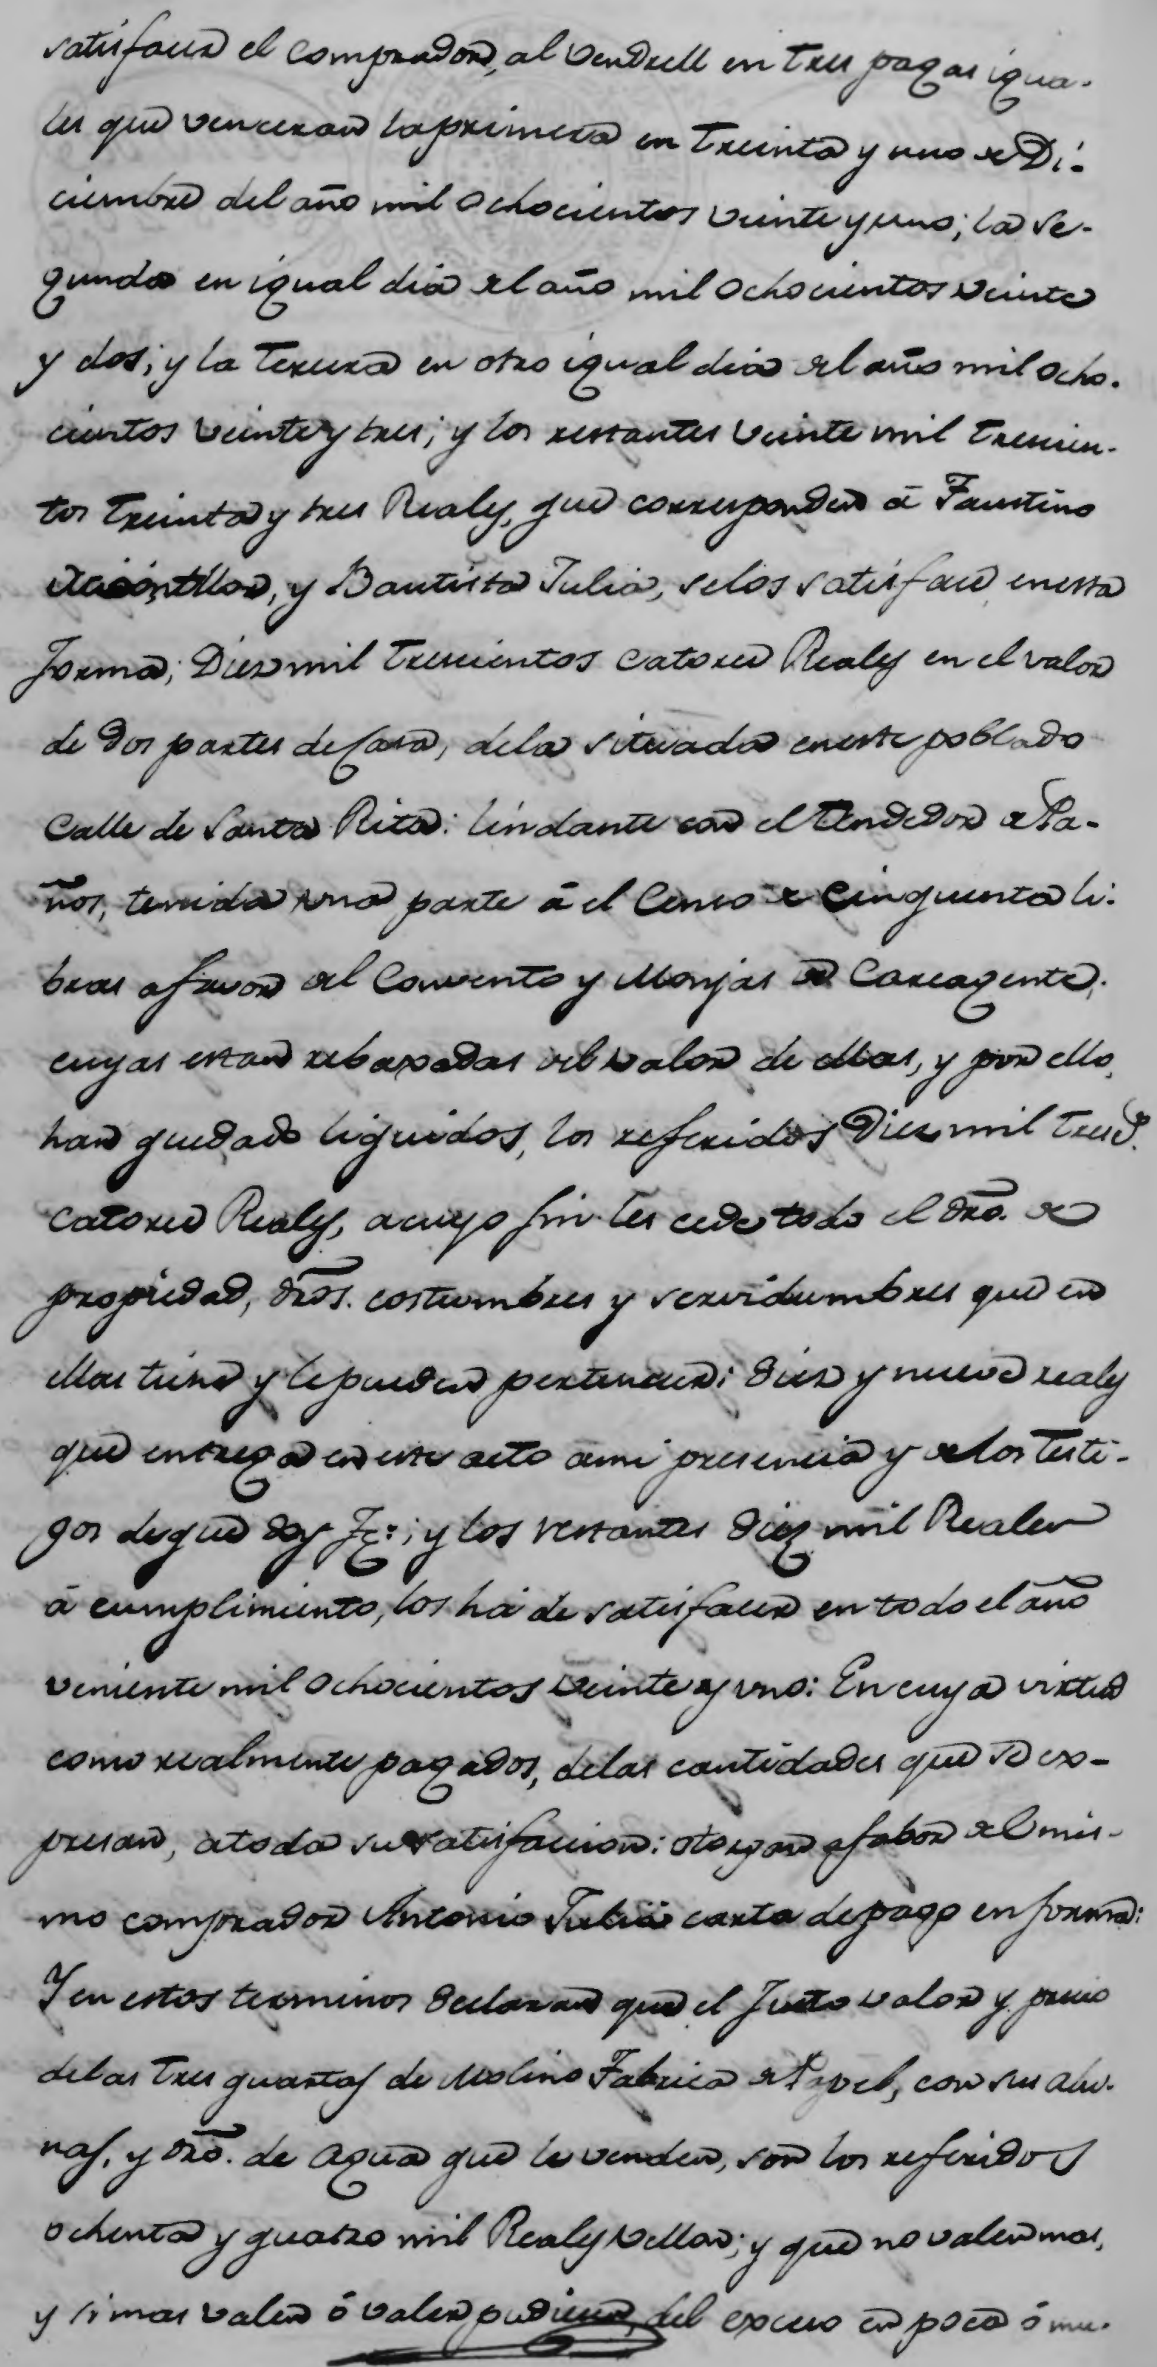 satisfacer el comprador, al Vendrell en tres pagas igua-
les que venceran la primera en treinta y uno de Di-
ciembre del año mil ochocientos veinte y uno; la se-
gunda en igual dia del año mil ochocientos veinte
y dos; y la tercera en otro igual dia del año mil ocho-
cientos veinte y tres; y los restantes veinte mil trescien-
tos treinta y tres Reales, que corresponden á Faustino
y Bautista Julia, se los satisface en esta
forma; Diez mil trescientos catorce Reales en el valor
de dos partes de Casa, de la situada en este poblado
Calle de Santa Rita: lindante con el tendedor de Pa-
ños, tenida una parte á el Censo de cinquenta li-
bras a favor del Convento y Monjas de Carcagente,
cuyas estan rebaxadas del valor de ellas, y por ello,
han quedado liquidos, los referidos Diez mil tresc.s
catorce Reales, a cuyo fin les cede todo el dro. de
propiedad, dros. costumbres y servidumbres que en
ellas tiene y le pueden pertenecer: diez y nueve reales
que entrega en este acto a mi presencia y de los testi-
gos de que doy Fe: y los restantes diez mil Reales
á cumplimiento, los ha de satisfacer en todo el año
veniente mil ochocientos veinte y uno: En cuya virtud
como realmente pagados, de las cantidades que se ex-
presan, a toda su satisfaccion: otorgan a fabor del mis-
mo comprador Antonio Julia carta de pago en forma:
Y en estos terminos declaran que el Justo valor y precio
de las tres quartas de Molino Fabrica de Papel, con sus ahi-
nas, y dro. de agua que le venden, son los referidos
ochenta y quatro mil Reales vellon; y que no valen mas,
y si mas valen ó valer pudieren, del exceso en poca ó mu-